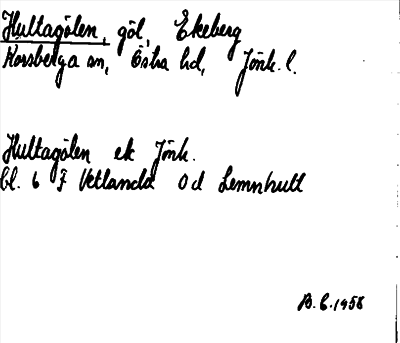 Hultagölen, göl, Ekeberg
Korsberga sn, Östra hd, Jönk. l.
Hultagölen ek Jönk.
bl. 6 F Vetlanda Od Lemnhult
B.E. 1958